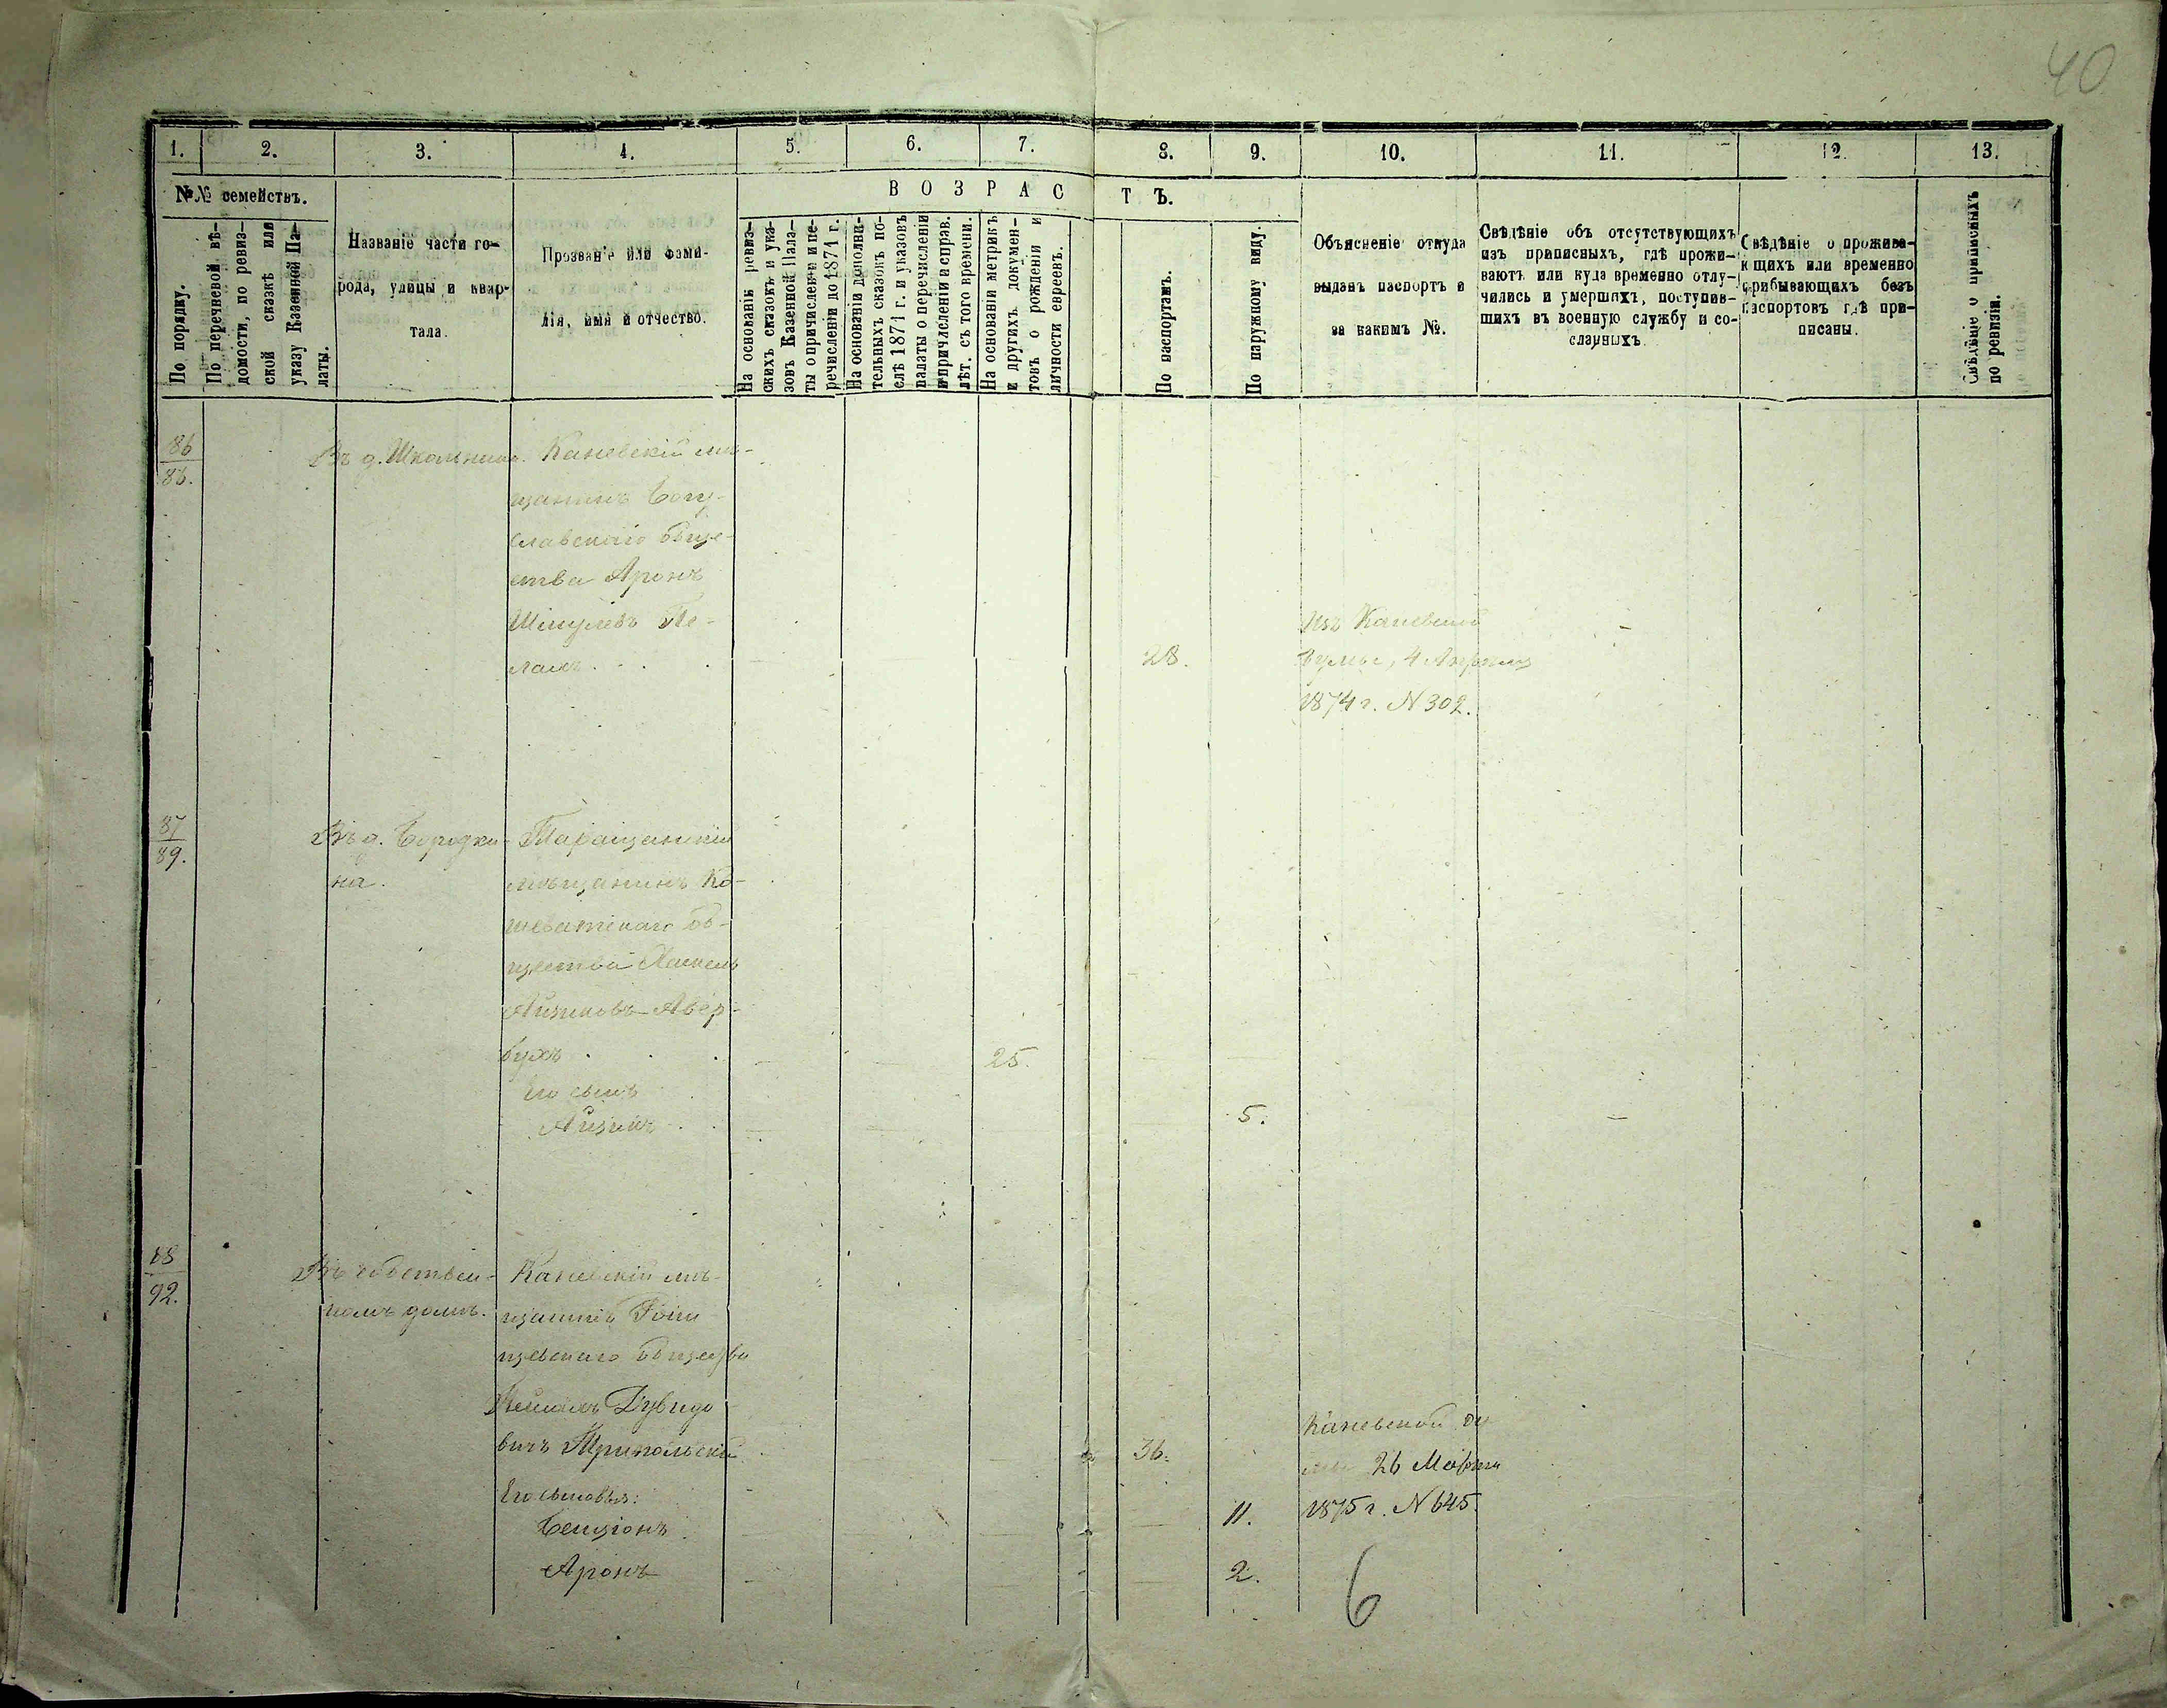 40
1. 2. 3. 4. 5. 6. 7. 8. 9. 10. 11. 12. 13.
№№ семействъ.
По порядку.
По перечневой вѣ-
домости, по ревиз-
ской сказкѣ или
указу Казенной Па-
латы.
Названіе части го-
рода, улицы и квар-
тала.
Прозваніе или фами-
лія, имя и отчество.
ВОЗРАСТЪ.
На основаніи ревиз-
скихъ сказокъ и ука-
зовъ Казенной Пала-
ты о причисленіи и пе-
речисленіи до 1871 г.
На основаніи дополни-
тельныхъ сказокъ по-
слѣ 1871 г. и указовъ
палаты о перечисленіи
и причисленіи и справ.
лѣт. съ того времени.
На основаніи метрикъ
и другихъ докумен-
товъ о рожденіи и
личности евреевъ.
По паспортамъ.
По наружному виду.
Объясненіе откуда
выданъ паспортъ и
за какимъ №.
Свѣдѣніе объ отсутствующихъ
изъ приписныхъ, гдѣ прожи-
ваютъ или куда временно отлу-
чились и умершихъ, поступив-
шихъ въ военную службу и со-
сланныхъ
Свѣдѣніе о прожива-
ющихъ или временно
прибывающихъ безъ
паспортовъ гдѣ при-
писаны.
Свѣдѣніе о приписныхъ
по ревизіи.
86
86.
Въ д. Школьника.
Каневскій мѣ-
щанинъ Богу-
славскаго обще-
ства Аронъ
Шмулевъ Пе-
лахъ . . .
28.
Изъ Каневской
Думы, 4 Апрѣля
1874 г. N 302.
87
89.
Въ д. Бородки-
на.
Таращанскій
мѣщанинъ Ко-
шеватскаго об-
щества Хаскель
Айзиковъ Авер-
бухъ . . .
25.
Его сынъ
Айзикъ . .
5.
88
92.
Въ собствен-
номъ домѣ.
Каневскій мѣ-
щанинъ
общества
Дувидо
вичъ Трипольскій
36.
Каневской Ду
мы 26 Марта
1875 г. N 645.
Его сыновья:
Бенціонъ .
11.
Аронъ
2.
6